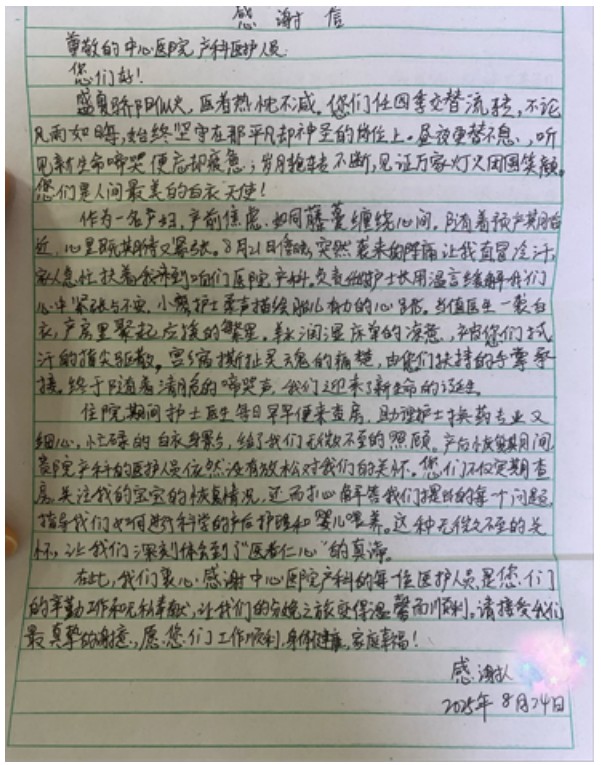 感谢信
尊敬的中心医院产科医护人员:
您们好!
盛夏骄阳似火,医者热忱不减。您们任四季交替流转,不论
风雨如晦,始终坚守在那平凡却神圣的岗位上。昼夜更替不息,听
见新生命啼哭便忘却疲惫;岁月轮转不断,见证万家灯火团圆笑颜。
您们是人间最美的白衣天使!
作为一名产妇,产前焦虑,如同藤蔓缠绕心间,随着预产期临
近,心里既期待又紧张。8月21日傍晚,突然袭来的阵痛让我直冒冷汗,
家人急忙扶着我来到咱们医院产科。负责的护士长用温言缓解我们
心中紧张与不安,小护士柔声描绘胎儿有力的心跳。当值医生一袭白
衣,产房里聚起应援的繁星。羊水润湿床单的凉意,被您们拭
汗的指尖驱散。宫缩撕扯灵魂的痛楚,由您们扶持的手掌承
接。终于随着清脆的啼哭声,我们迎来了新生命的诞生。
住院期间护士医生每日早早便来查房,助理护士换药专业又
细心,忙碌的白衣身影,给了我们无微不至的照顾。产后恢复期间,
医院产科的医护人员依然没有放松对我们的关怀。您们不仅定期查
房,关注我的宝宝的恢复情况,还耐心解答我们提出的每个问题,
指导我们如何进行科学的产后护理和婴儿喂养。这种无微不至的关
怀,让我们深刻体会到了“医者仁心”的真谛。
在此,我们衷心感谢中心医院产科的每位医护人员,是您们
的辛勤工作和无私奉献,让我们的分娩之旅变得温馨而顺利。请接受我们
最真挚的谢意,愿您们工作顺利,身体健康,家庭幸福!
感谢人
2025年8月24日